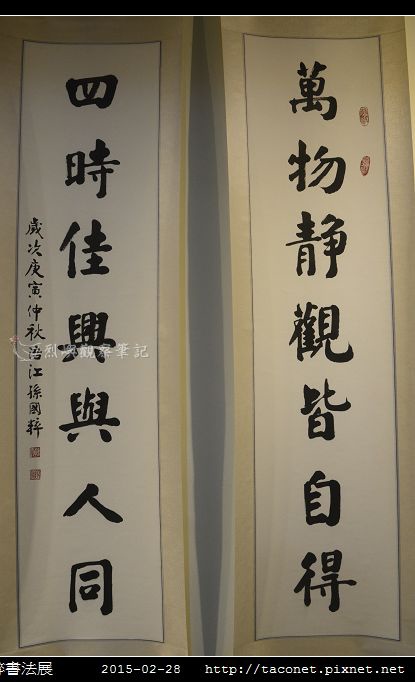 萬物静觀皆自得
四時佳興與人同
歲次庚寅仲秋 江孫國粹
烈嶼觀察筆記
書法展 2015-02-28 http://taconet.pixnet.net